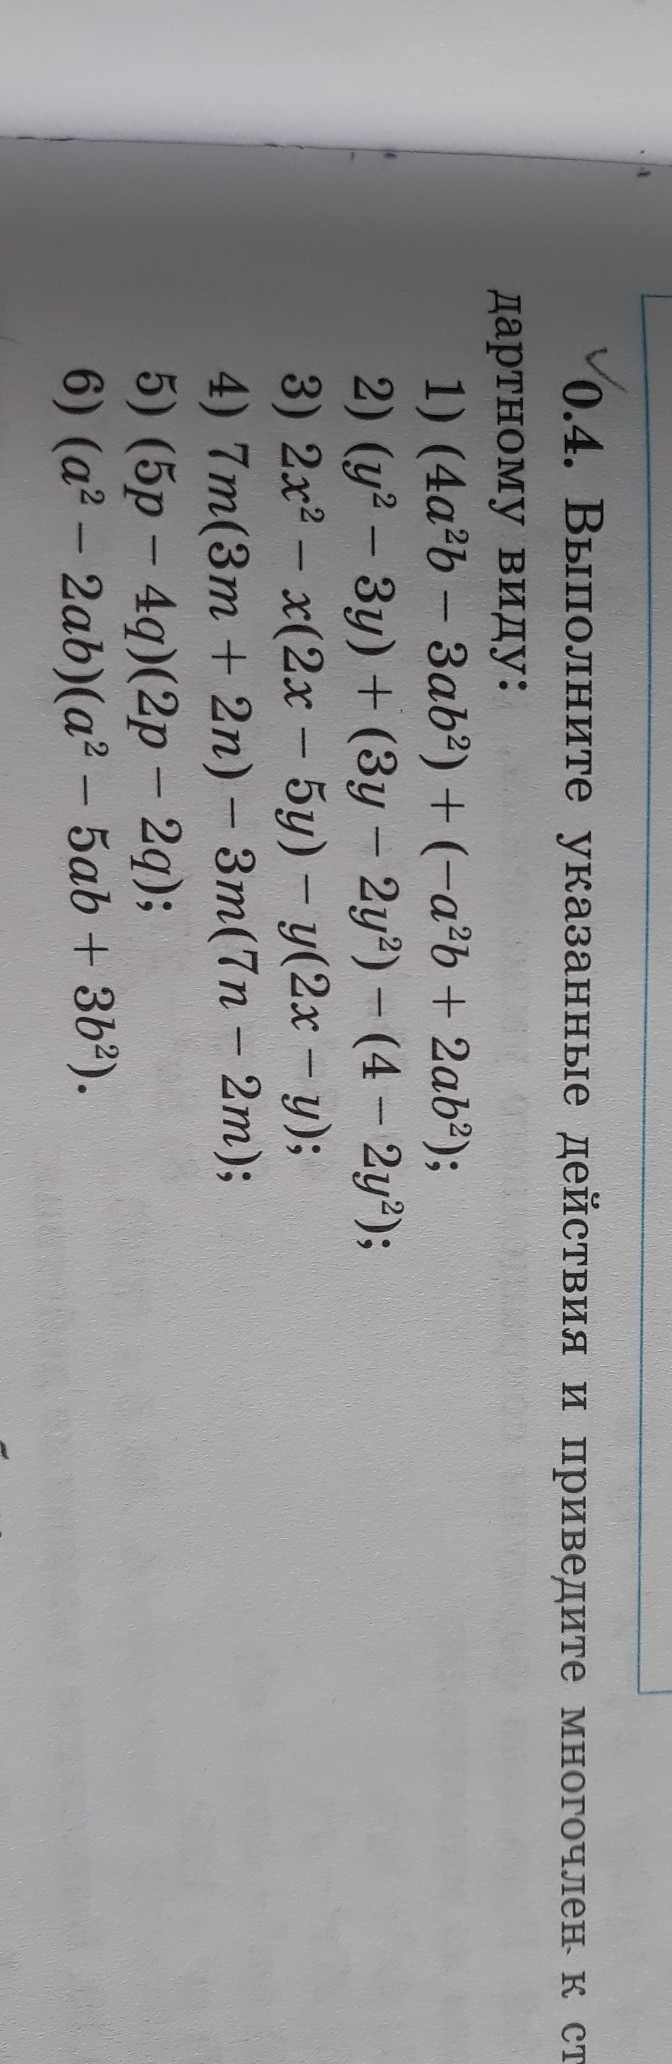 0.4. Выполните указанные действия и приведите многочлен к ст
дартному виду:
1) (4a²b − 3ab²) + (−a²b + 2ab²);
2) (y² − 3y) + (3y − 2y²) − (4 − 2y²);
3) 2x² − x(2x − 5y) − y(2x − y);
4) 7m(3m + 2n) − 3m(7n − 2m);
5) (5p − 4q)(2p − 2q);
6) (a² − 2ab)(a² − 5ab + 3b²).